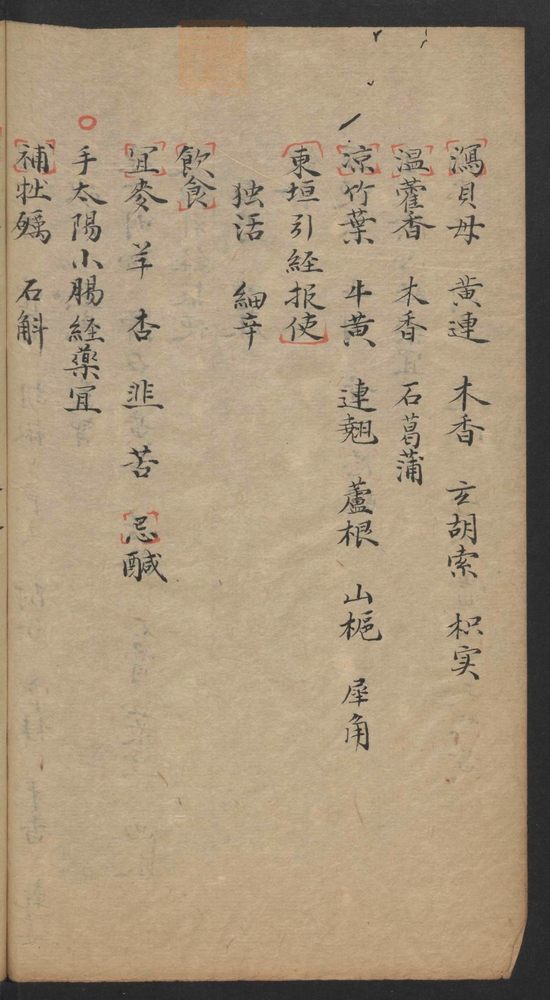 瀉貝母 黄連 木香 玄胡索 枳实
溫藿香 木香 石菖蒲
凉竹葉 牛黄 連翹 蘆根 山栀 犀角
東垣引経报使
独活 細辛
飲食
宜麥 羊 杏 韭 苦 忌醎
手太陽小腸経藥宜
補牡蠣 石斛